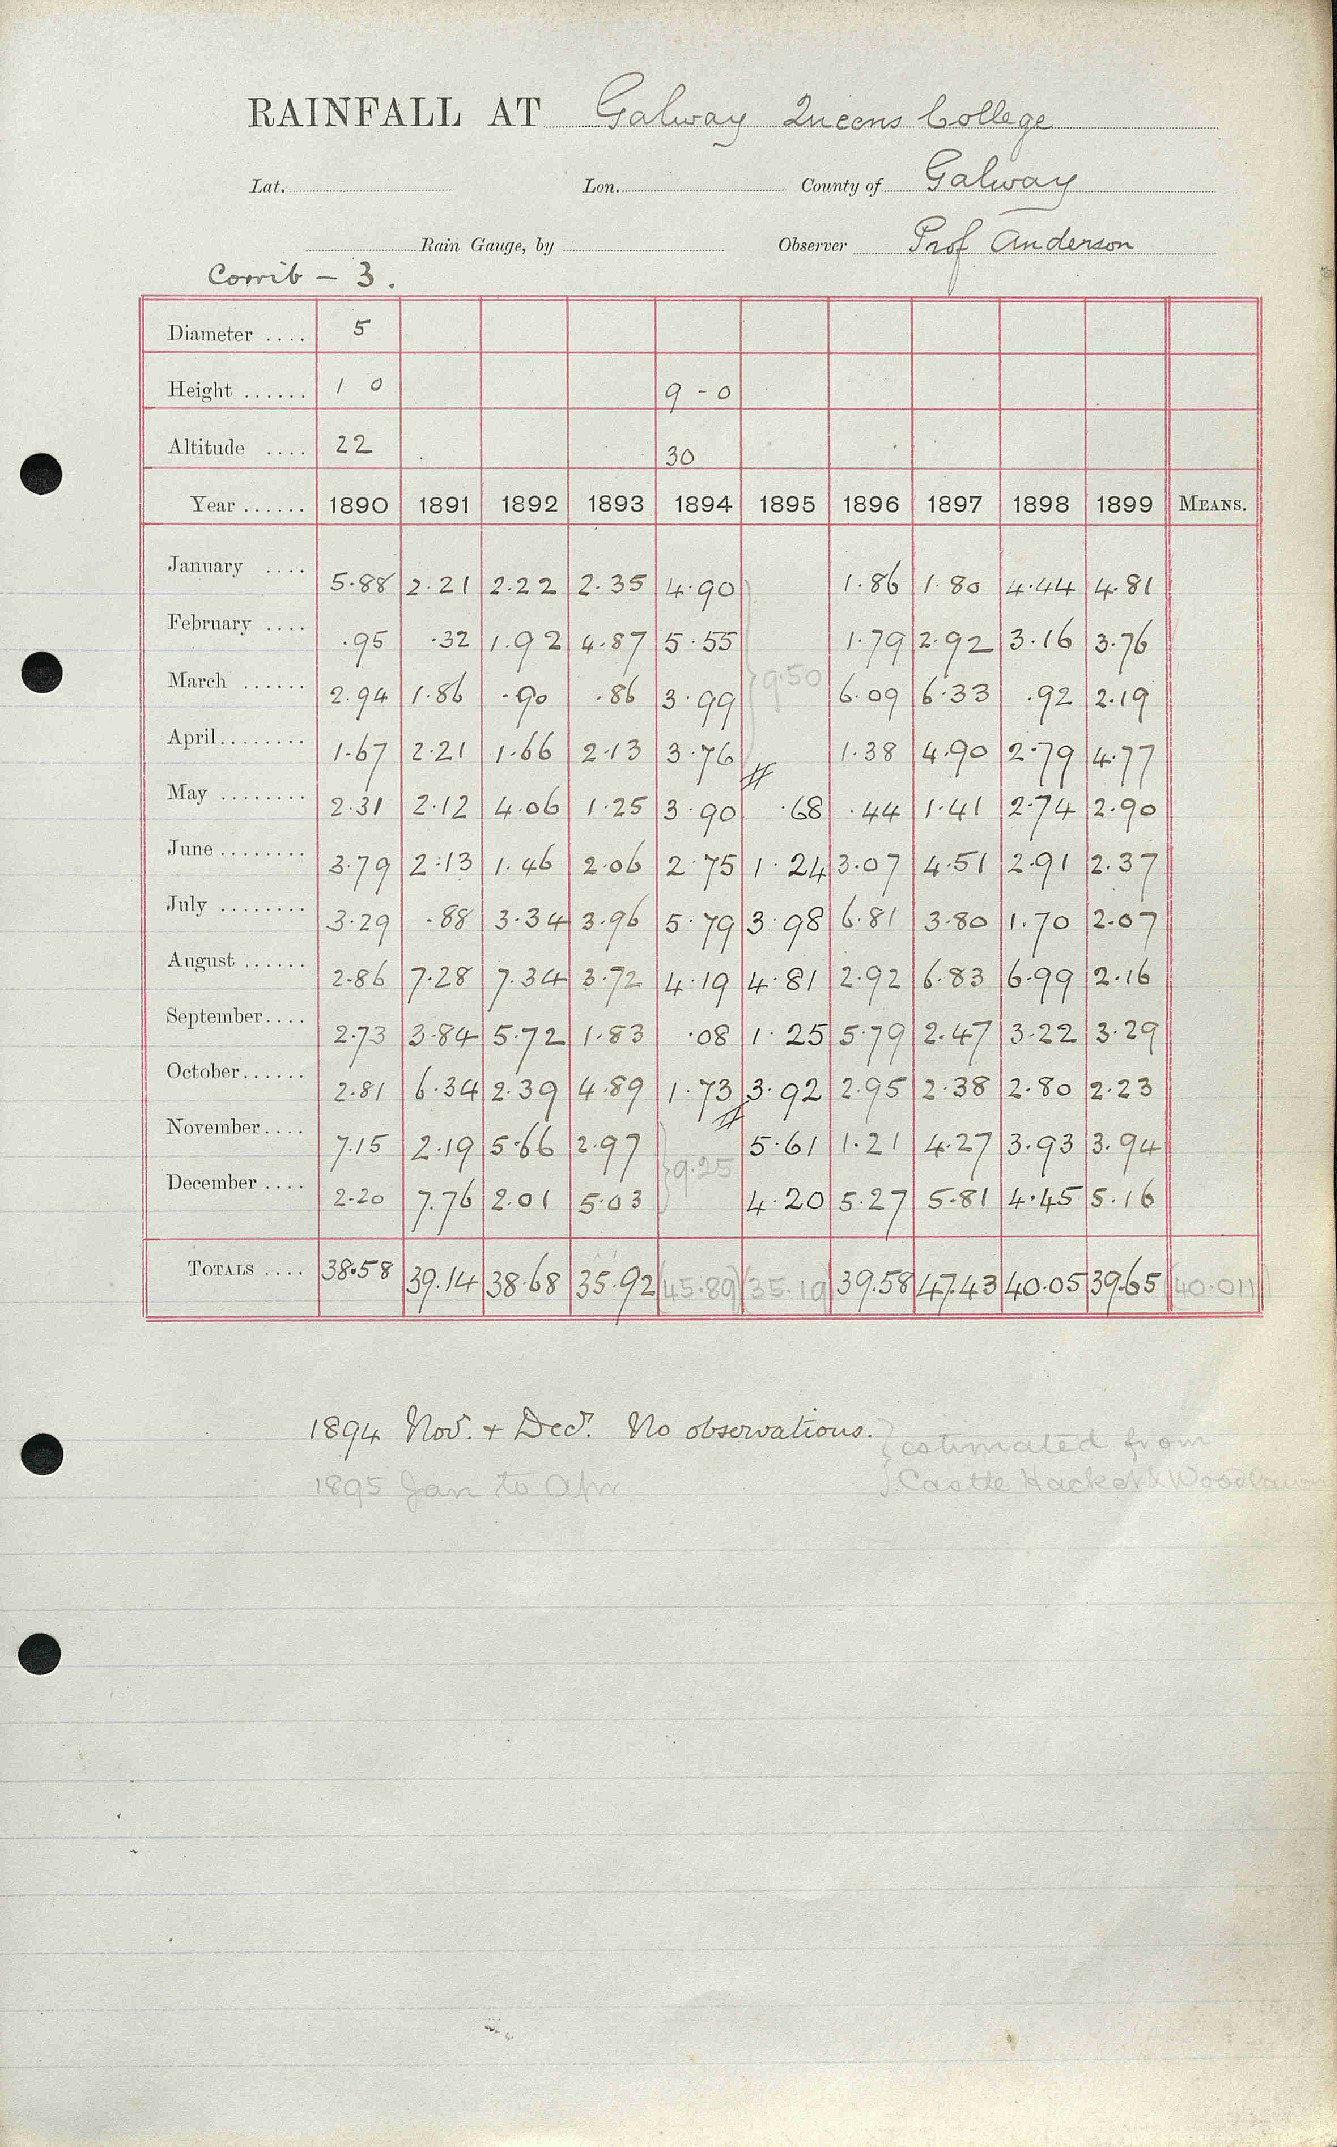 RAINFALL AT Galway Queens College
Lat. Lon. County of Galway
Rain Gauge, by Observer Prof Anderson
Corrib - 3.
Diameter .... 5
Height ...... 1 0 9 - 0
Altitude .... 22 30
Year ...... 1890 1891 1892 1893 1894 1895 1896 1897 1898 1899 MEANS.
January .... 5.88 2.21 2.22 2.35 4.90 1.86 1.80 4.44 4.81
February .... .95 .32 1.92 4.87 5.55 1.79 2.92 3.16 3.76
March ...... 2.94 1.86 .90 .86 3.99 9.50 6.09 6.33 .92 2.19
April ........ 1.67 2.21 1.66 2.13 3.76 1.38 4.90 2.79 4.77
May ........ 2.31 2.12 4.06 1.25 3.90 .68 .44 1.41 2.74 2.90
June ........ 3.79 2.13 1.46 2.06 2.75 1.24 3.07 4.51 2.91 2.37
July ........ 3.29 .88 3.34 3.96 5.79 3.98 6.81 3.80 1.70 2.07
August ...... 2.86 7.28 7.34 3.72 4.19 4.81 2.92 6.83 6.99 2.16
September .... 2.73 3.84 5.72 1.83 .08 1.25 5.79 2.47 3.22 3.29
October ...... 2.81 6.34 2.39 4.89 1.73 3.92 2.95 2.38 2.80 2.23
November .... 7.15 2.19 5.66 2.97 5.61 1.21 4.27 3.93 3.94
9.25
December .... 2.20 7.76 2.01 5.03 4.20 5.27 5.81 4.45 5.16
TOTALS .... 38.58 39.14 38.68 35.92 (45.89) (35.19) 39.58 47.43 40.05 39.65 (40.011)
1894 Nov. + Dec. No observations. } estimated from
1895 Jan to Apr } Castle Hacket & Woodlawn